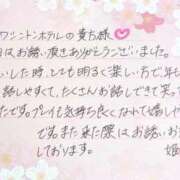 ワシントンホテルの貴方様
日はお誘い頂きありがとうございました。
いした時、とても明るく楽しい方で、年
話しやすくて、たくさんお話しできて笑って
たです。プレイも気持ち良くなれて嬉し
です。また来た際はお誘いお
しております。